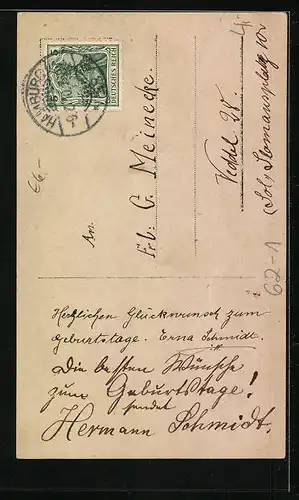 HAMBURG
DEUTSCHES REICH
An
Frl. G. Meinecke.
Veddel
66.-
62-1
Herzlichen Glückwunsch zum
Geburtstage. Erna Schmidt.
Die besten Wünsche
zum Geburtstage!
sendet
Hermann Schmidt.